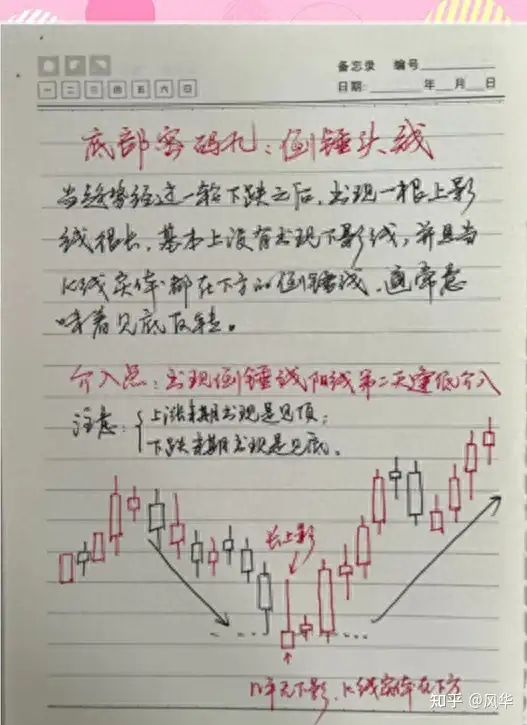 备忘录 编号
一 二 三 四 五 六 日
日期: 年 月 日
底部密码九:倒锤头线
当趋势经过一轮下跌之后,出现一根上影
线很长,基本上没有出现下影线,并且当
K线实体都在下方的倒锤线,通常意
味着见底反转。
介入点:出现倒锤线阳线第二天逢低介入
注意:上涨末期出现是见顶;
下跌末期出现是见底。
长上影
几乎无下影,K线实体在下方
知乎 @风华